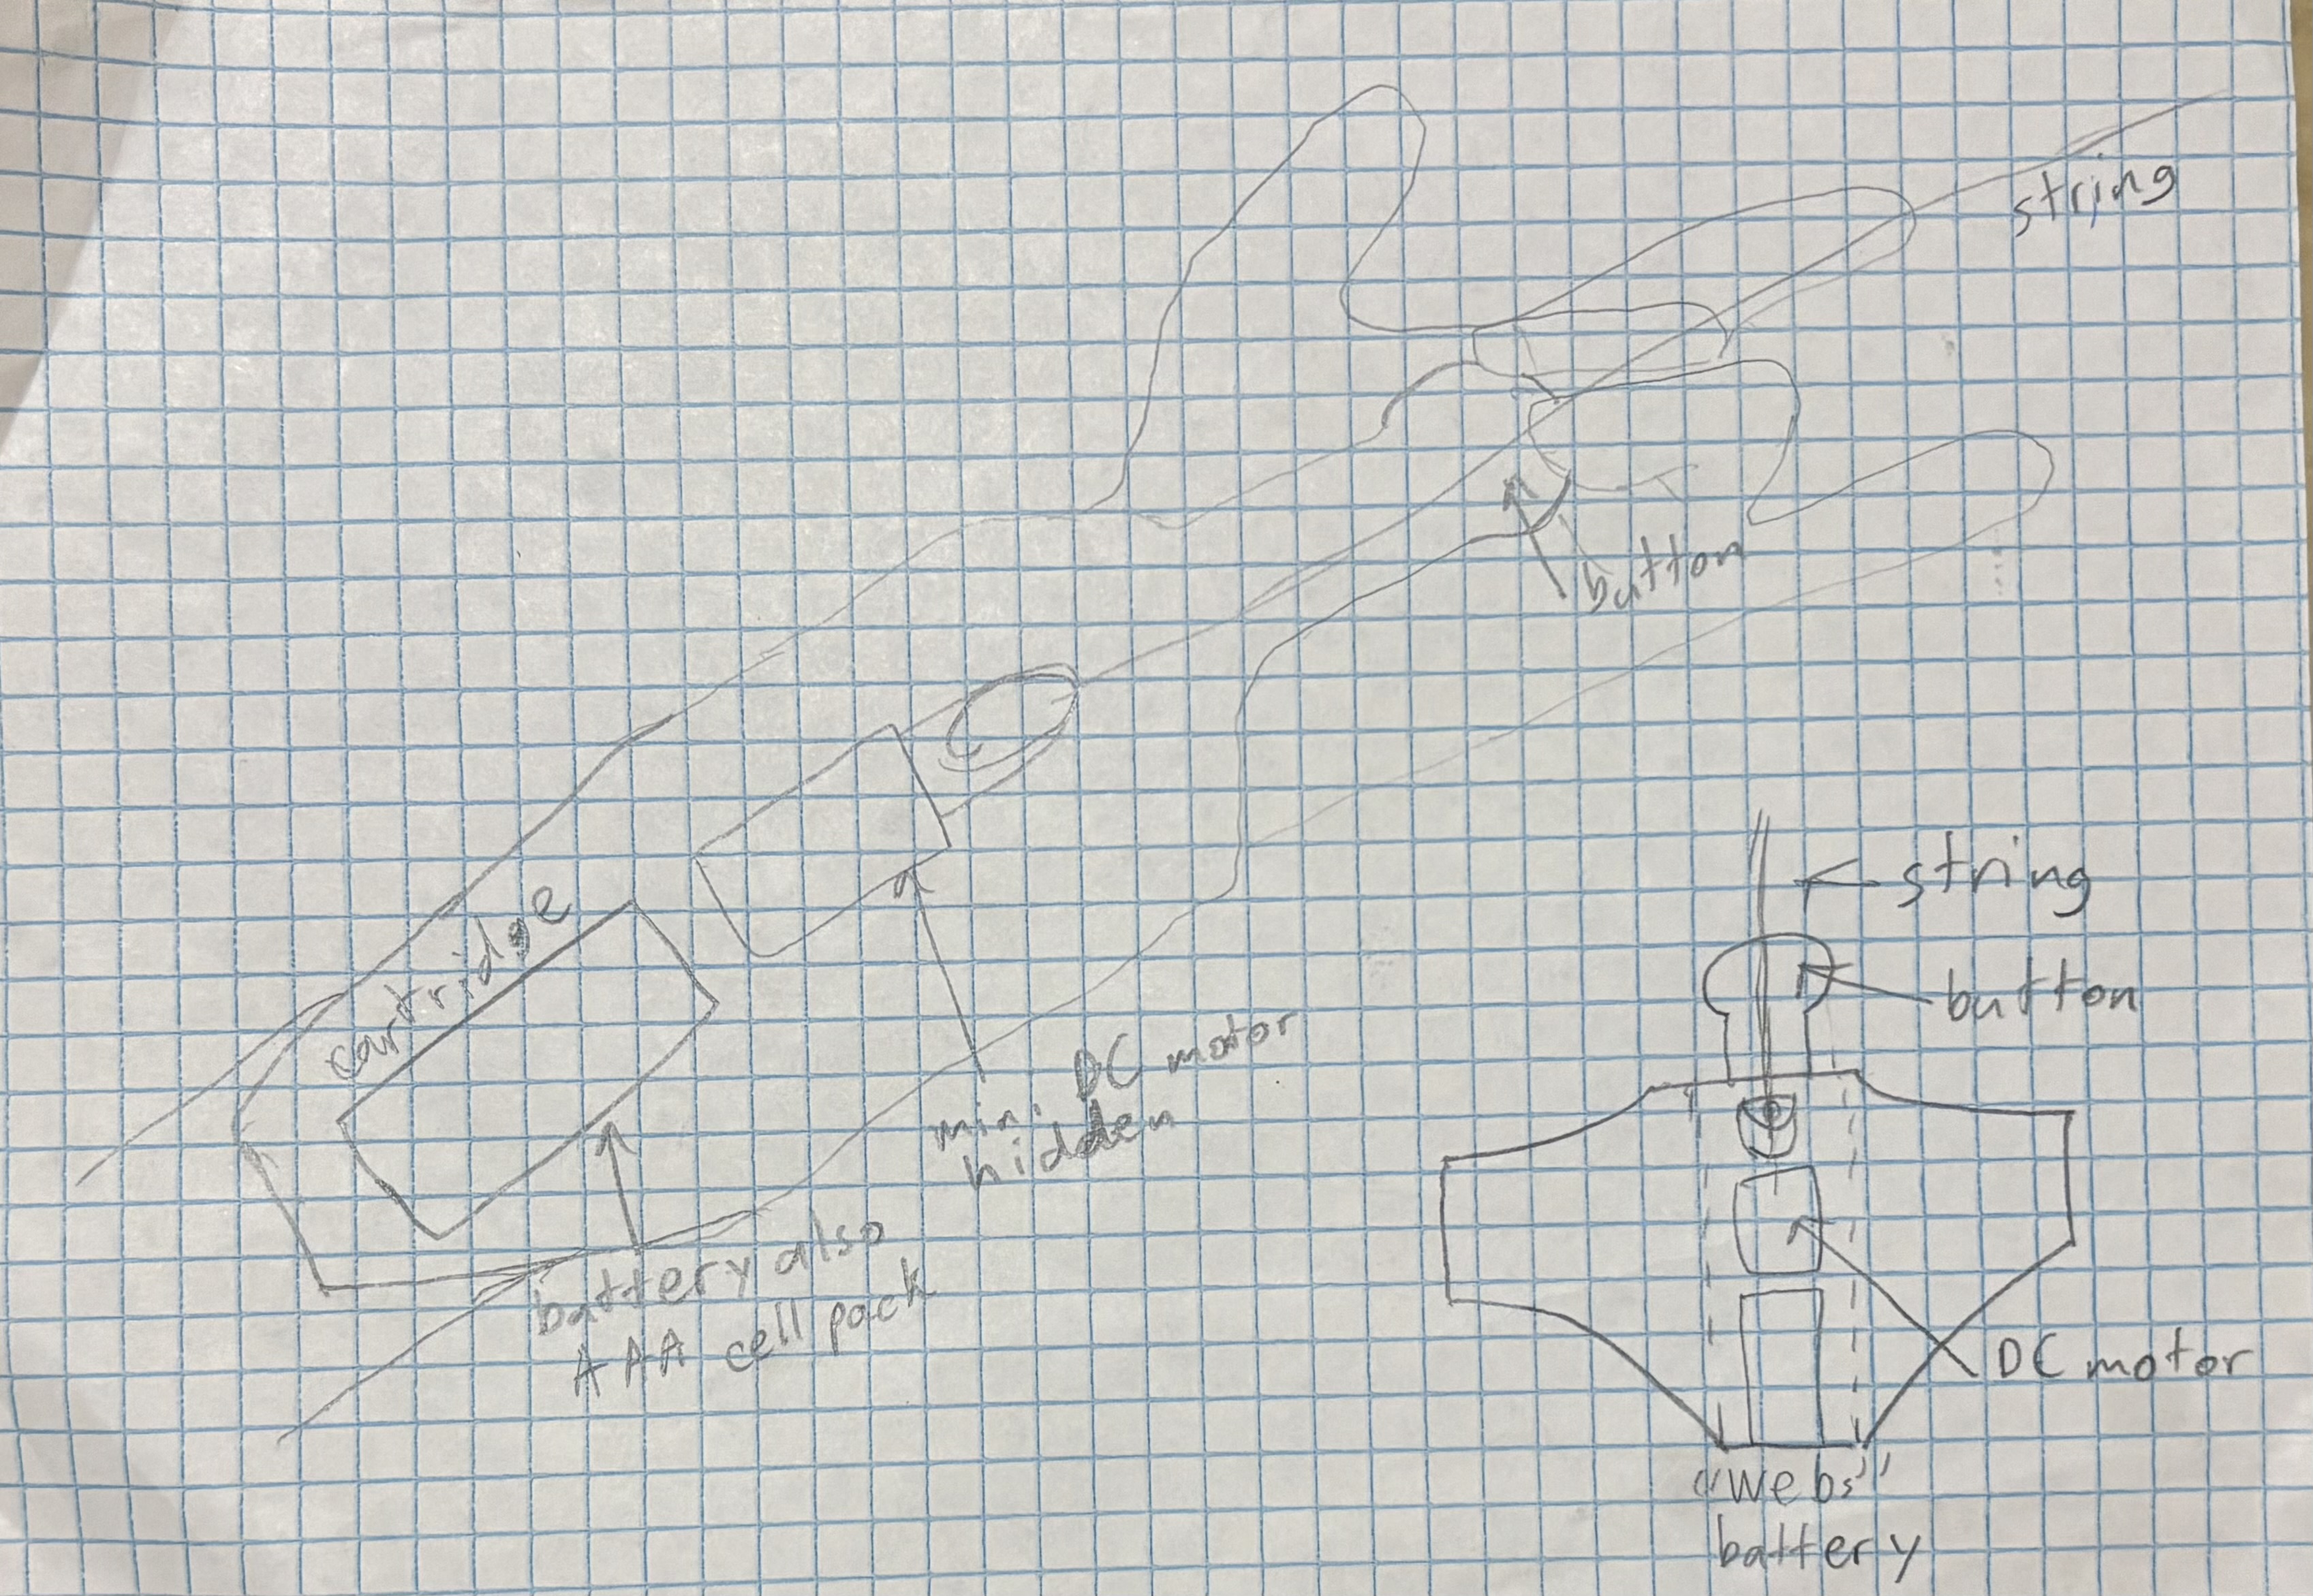 string
button
cartridge
mini DC motor
hidden
battery also
AAA cell pack
string
button
DC motor
"webs"
battery